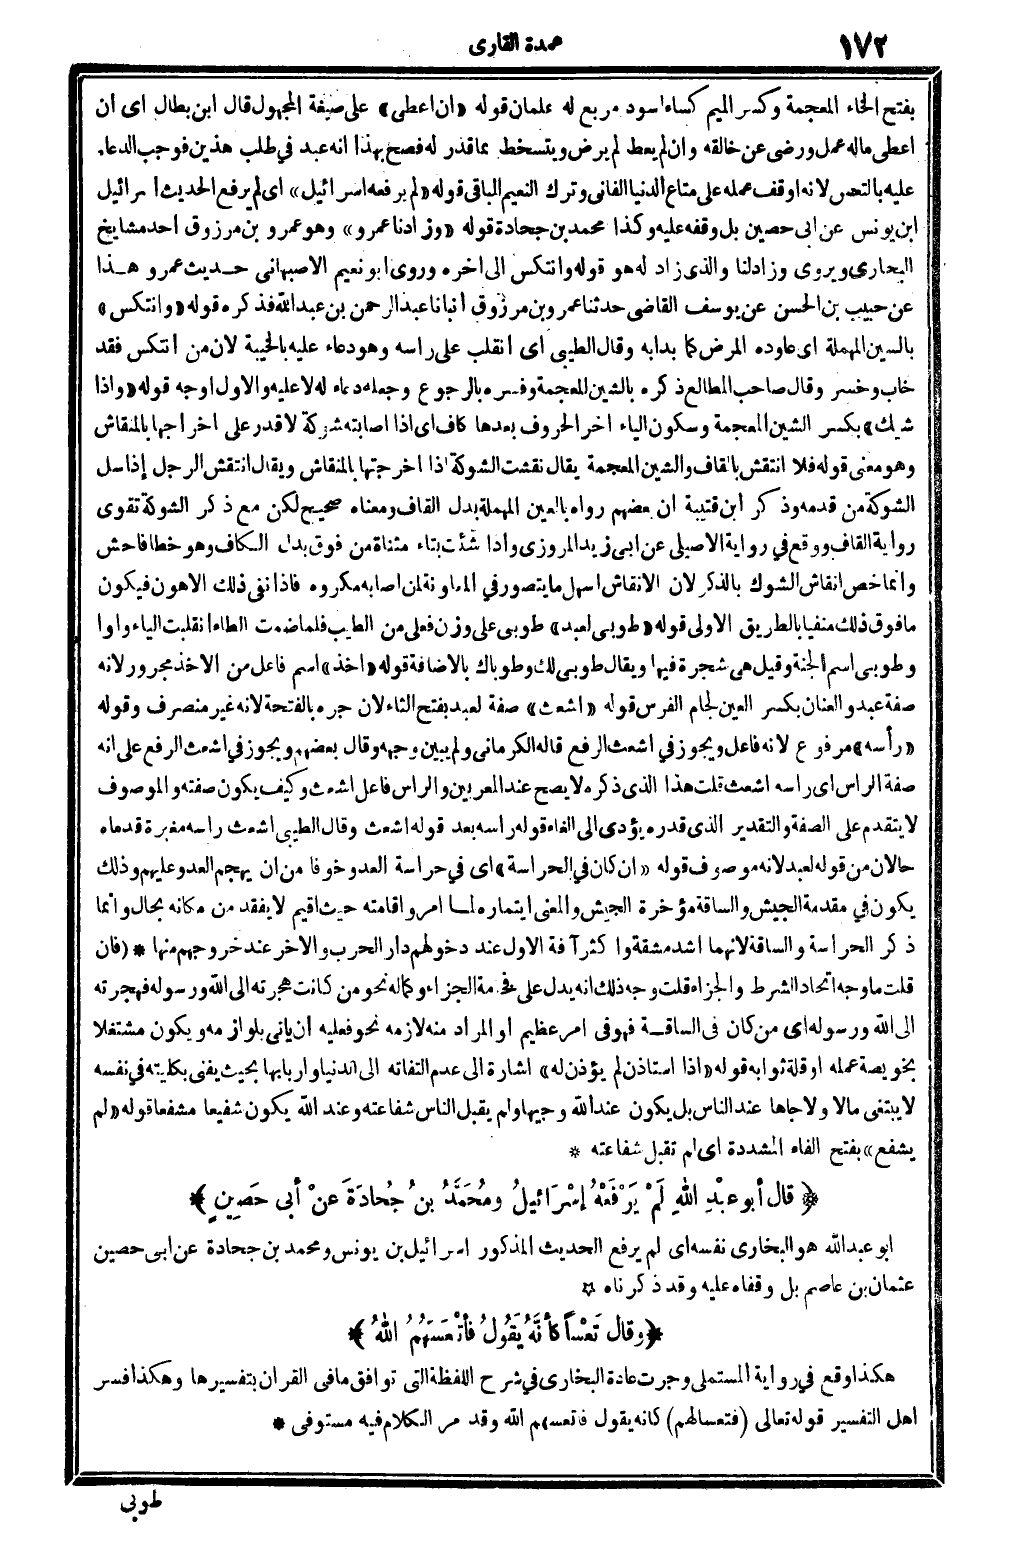 ١٧٢
عمدة القارى
بفتح الخاء المعجمة وكسر الميم كساء اسود مربع له علمان قوله «ان اعطى» على صيغة المجهول قال ابن بطال اى ان
اعطى ماله عمل ورضى عن خالقه وان لم يعط لم يرض ويتسخط بما قدر له فصح بهذا انه عبد في طلب هذين فوجب الدعاء
عليه بالتعس لانه اوقف عمله على متاع الدنيا الفانى وترك النعيم الباقى قوله «لم يرفعه اسرائيل» اى لم يرفع الحديث اسرائيل
ابن يونس عن ابى حصين بل وقفه عليه وكذا محمد بن جحادة قوله «وزادنا عمرو» وهو عمرو بن مرزوق احد مشايخ
البخارى ويروى وزاد لنا والذى زاد له هو قوله وانتكس الى اخره وروى ابو نعيم الاصبهانى حديث عمرو هذا
عن حبيب بن الحسن عن يوسف القاضى حدثنا عمرو بن مرزوق أنبانا عبد الرحمن بن عبد الله فذكره قوله «وانتكس»
بالسين المهملة اى عاوده المرض كما بدا به وقال الطيبى اى انقلب على راسه وهو دعاء عليه بالخيبة لان من انتكس فقد
خاب وخسر وقال صاحب المطالع ذكره بالشين المعجمة وفسره بالرجوع وجعله دعاء له لا عليه والاول اوجه قوله «واذا
شيك» بكسر الشين المعجمة وسكون الياء اخر الحروف بعدها كاف اى اذا اصابته شوكة لا قدر على اخراجها بالمنقاش
وهو معنى قوله فلا انتقش بالقاف والشين المعجمة يقال نقشت الشوكة اذا اخرجتها بالمنقاش ويقال انتقش الرجل إذا سل
الشوكة من قدمه وذكر ابن قتيبة ان بعضهم رواه بالعين المهملة بدل القاف ومعناه صحيح لكن مع ذكر الشوكة تقوى
رواية القاف ووقع في رواية الاصيلى عن ابى زيد المروزى واذا شئت بتاء مثناة من فوق بدل الكاف وهو خطا فاحش
وانما خص انقاش الشوك بالذكر لان الانقاش اسهل ما يتصور في المعاونة لمن اصابه مكروه فاذا نفى ذلك الاهون فيكون
ما فوق ذلك منفيا بالطريق الاولى قوله «طوبى لعبد» طوبى على وزن فعلى من الطيب فلما ضمت الطاء انقلبت الياء واوا
وطوبى اسم الجنة وقيل هى شجرة فيها ويقال طوبى لك وطوباك بالاضافة قوله «اخذ» اسم فاعل من الاخذ مجرور لانه
صفة عبد والعنان بكسر العين لجام الفرس قوله «اشعث» صفة لعبد بفتح الثاء لان جره بالفتحة لانه غير منصرف وقوله
«رأسه» مرفوع لانه فاعل ويجوز في اشعث الرفع قاله الكرمانى ولم يبين وجهه وقال بعضهم ويجوز في اشعث الرفع على انه
صفة الراس اى راسه اشعث قلت هذا الذى ذكره لا يصح عند المعربين والراس فاعل اشعث وكيف يكون صفته والموصوف
لا يتقدم على الصفة والتقدير الذى قدره يؤدى الى الغاء قوله راسه بعد قوله اشعث وقال الطيبى اشعث راسه مغبرة قدماه
حالان من قوله لعبد لانه موصوف قوله «ان كان في الحراسة» اى في حراسة العدو خوفا من ان يهجم العدو عليهم وذلك
يكون في مقدمة الجيش والساقة مؤخرة الجيش والمعنى ايتماره لما امر واقامته حيث اقيم لا يفقد من مكانه بحال وانما
ذكر الحراسة والساقة لانهما اشد مشقة واكثر آفة الاول عند دخولهم دار الحرب والاخر عند خروجهم منها * (فان
قلت ما وجه اتحاد الشرط والجزاء قلت وجه ذلك انه يدل على فخامة الجزاء وكماله نحو من كانت هجرته الى الله ورسوله فهجرته
الى الله ورسوله اى من كان فى الساقة فهو فى امر عظيم او المراد منه لازمه نحو فعليه ان ياتى بلوازمه ويكون مشتغلا
بخويصة عمله او قلة ثوابه قوله «اذا استاذن لم يؤذن له» اشارة الى عدم التفاته الى الدنيا واربابها بحيث يفنى بكليته في نفسه
لا يبتغى مالا ولا جاها عند الناس بل يكون عند الله وجيها ولم يقبل الناس شفاعته وعند الله يكون شفيعا مشفعا قوله «لم
يشفع» بفتح الفاء المشددة اى لم تقبل شفاعته *
﴿ قال أبو عبْدِ اللهِ لَمْ يَرْفَعْهُ إسْرَائيلُ ومُحَمَّدُ بنُ جُحادَةَ عنْ أبى حَصِينٍ ﴾
ابو عبد الله هو البخارى نفسه اى لم يرفع الحديث المذكور اسرائيل بن يونس ومحمد بن جحادة عن ابى حصين
عثمان بن عاصم بل وقفاه عليه وقد ذكرناه *
﴿ وقال تَعْساً كأنَّهُ يَقُولُ فأتْعَسَهُمُ اللهُ ﴾
هكذا وقع في رواية المستملى وجرت عادة البخارى في شرح اللفظة التى توافق ما فى القران بتفسيرها وهكذا فسر
اهل التفسير قوله تعالى (فتعسا لهم) كانه يقول فاتعسهم الله وقد مر الكلام فيه مستوفى *
طوبى